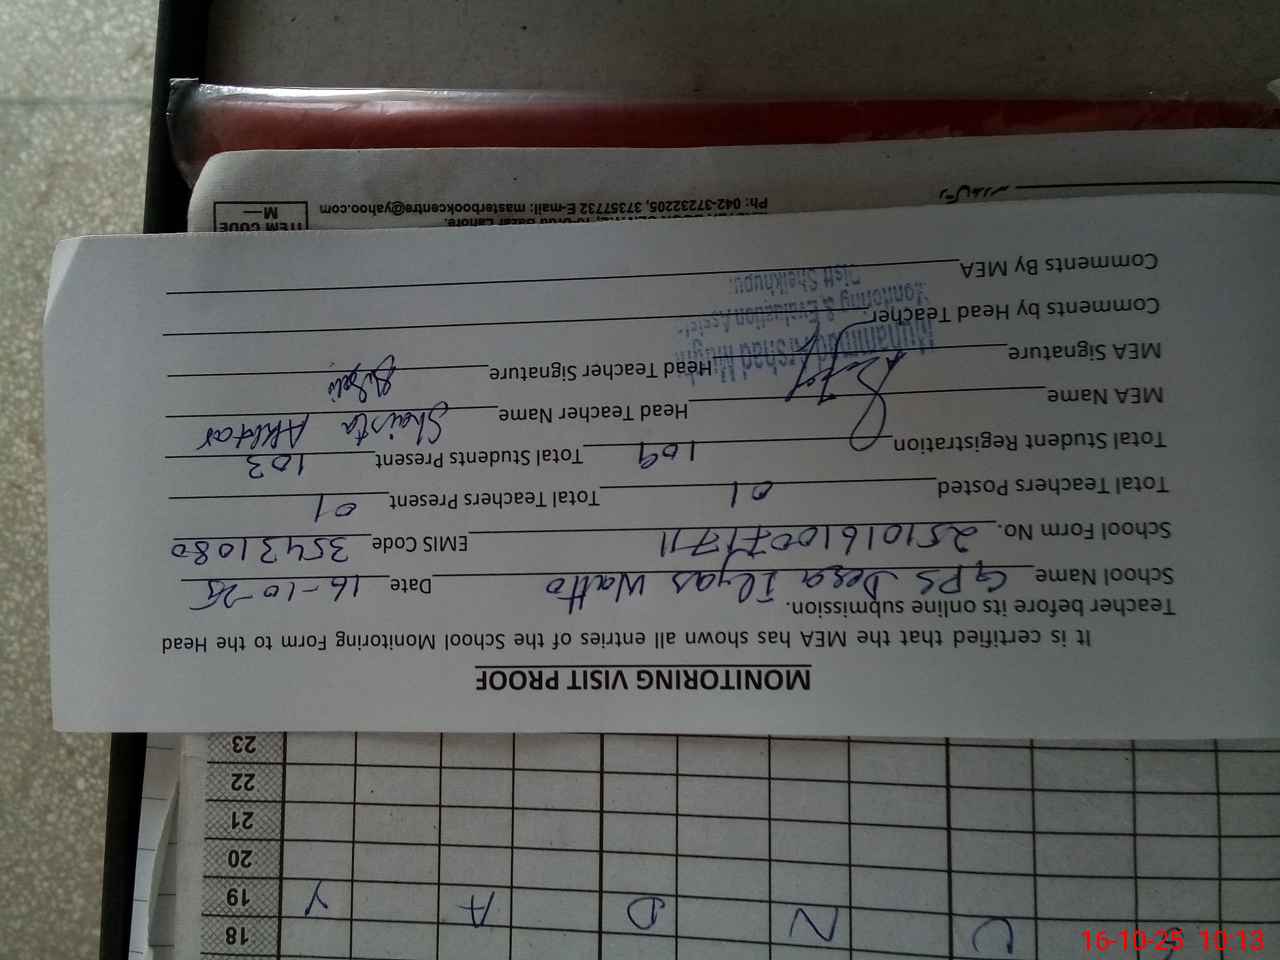 MONITORING VISIT PROOF
It is certified that the MEA has shown all entries of the School Monitoring Form to the Head
Teacher before its online submission.
School Name GPS Dera Ilyas Watto Date 16-10-25
School Form No. EMIS Code 35431080
Total Teachers Posted 01 Total Teachers Present 01
Total Student Registration 109 Total Students Present 103
MEA Name Head Teacher Name Shaista Akhtar
MEA Signature Head Teacher Signature
Comments by Head Teacher
Comments By MEA
Muhammad Arshad
Monitoring & Evaluation Assist
Distt Sheikhupu
Ph: 042-37232205, 37357732 E-mail: masterbookcentre@yahoo.com
ITEM CODE
M—
18 U N D A Y
19
20
21
22
23
16-10-25 10:13